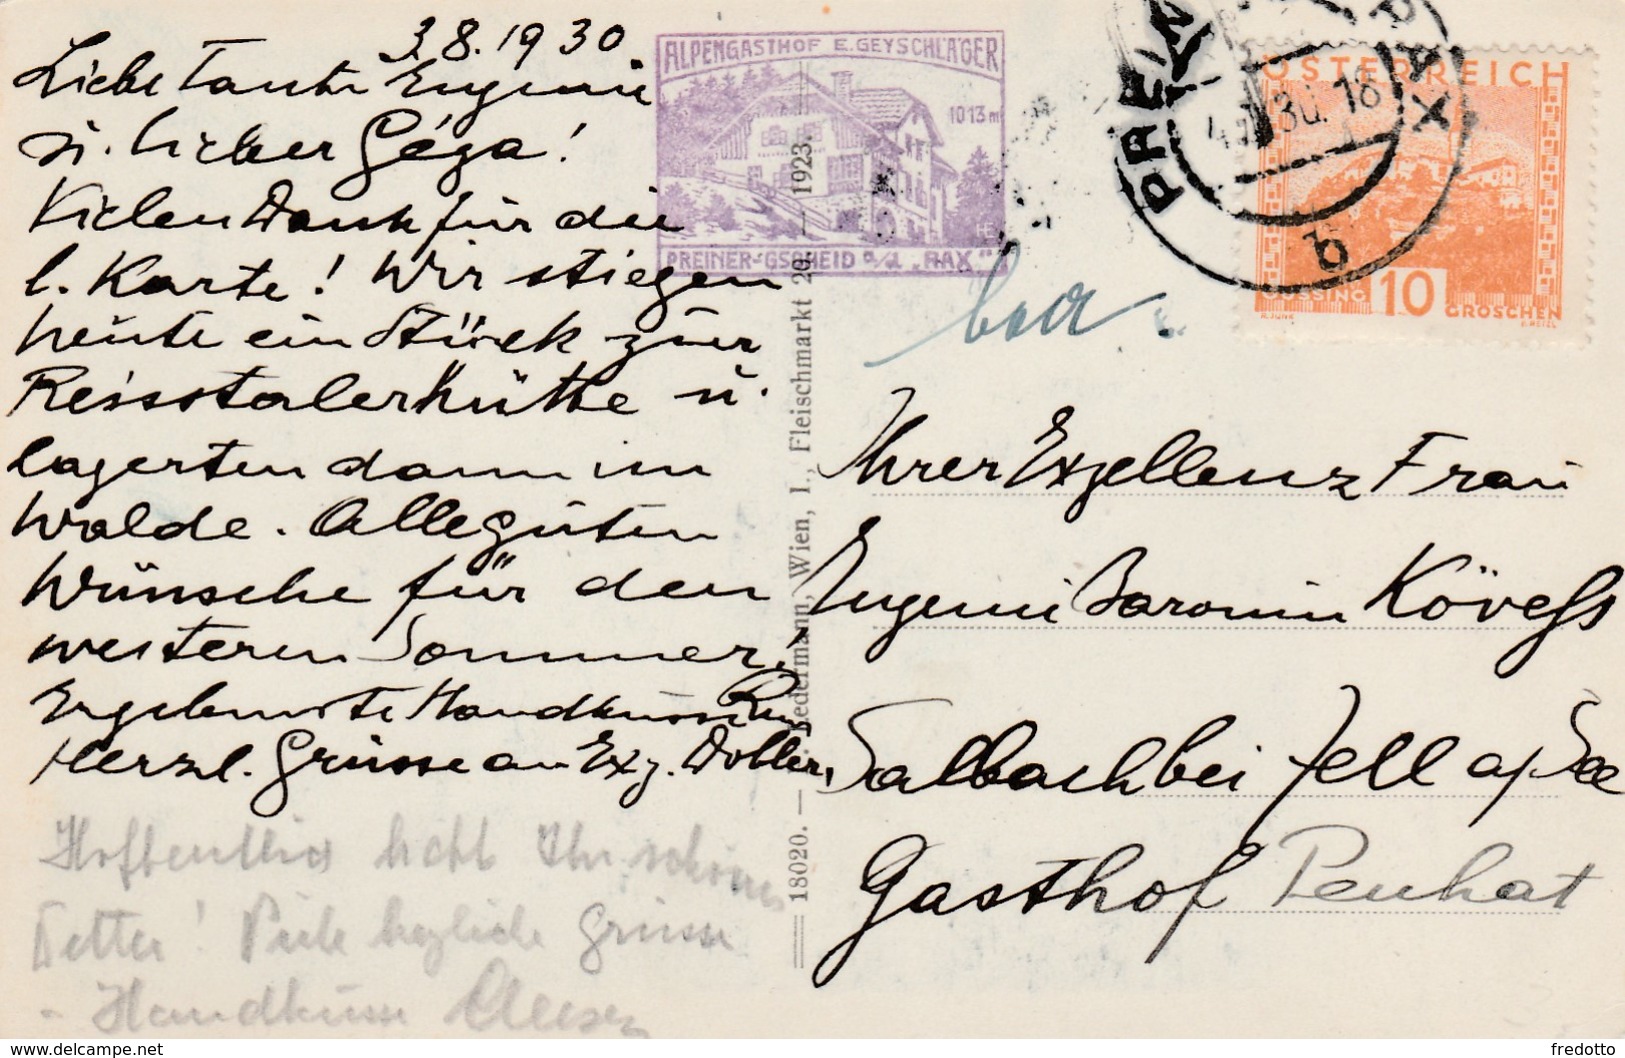 3.8.1930
Liebe Tante Eugenie
u. lieber Géza!
Vielen Dank für die
l. Karte! Wir stiegen
heute ein Stück zur
Reisstalerhütte u.
lagerten dann im
Walde. Alle guten
Wünsche für den
weiteren Sommer!
Ergebenste Handküsse
Herzl. Grüsse an Exz.
Hoffentlich habt Ihr schönes
Wetter! Viele herzliche Grüsse
- Handküsse
ALPENGASTHOF E. GEYSCHLÄGER
1013 m
HE
PREINER-GSCHEID a/d. „RAX"
18020. — Ledermann, Wien, I., Fleischmarkt 20. — 1923.
PREIN
RAX
30. 18
b
ÖSTERREICH
GÜSSING 10 GROSCHEN
Ihrer Exzellenz Frau
Eugenie Baronin Kövess
Salbach bei Zell a/See
Gasthof Penhat
fredotto